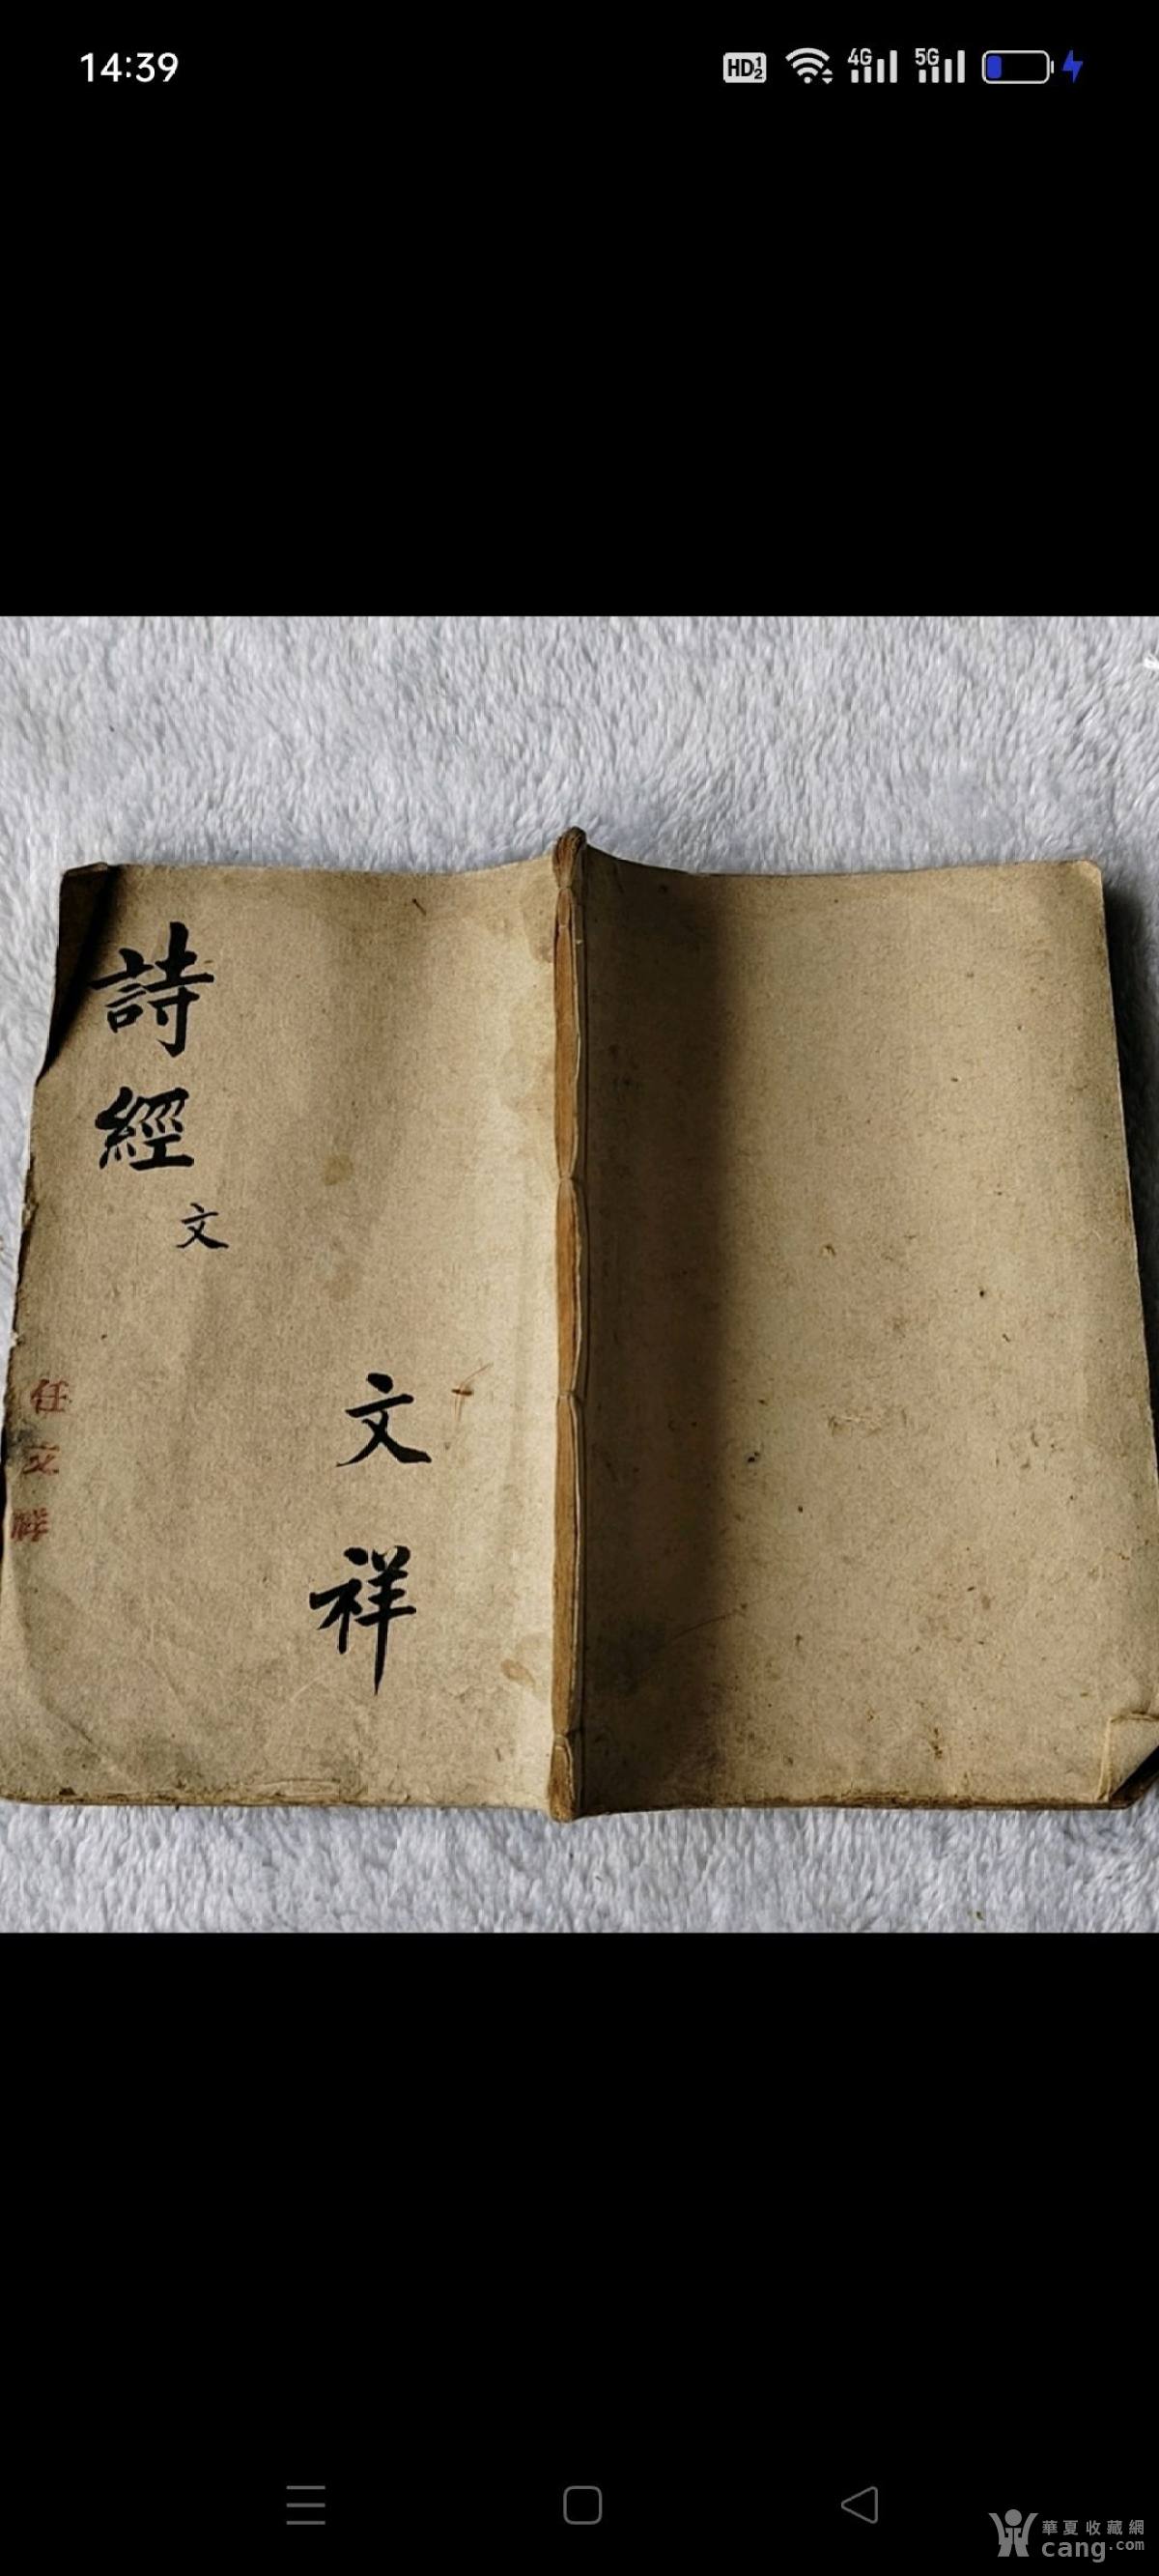 14:39
HD 1 2
4G
5G
詩經
文
文祥
任文祥
華夏收藏網
cang.com